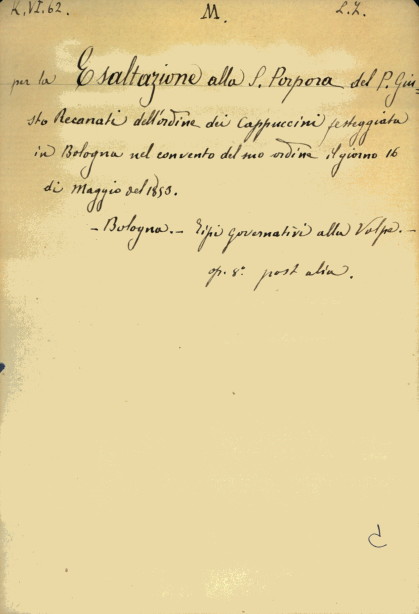 K.VI.62. M. L.Z.
per la Esaltazione alla S. Porpora del P. Giu=
sto Recanati dell'ordine dei Cappuccini festeggiata
in Bologna nel convento del suo ordine il giorno 16
di Maggio del 1853.
- Bologna. - Tipi governativi alla Volpe. -
op. 8.° post alia.